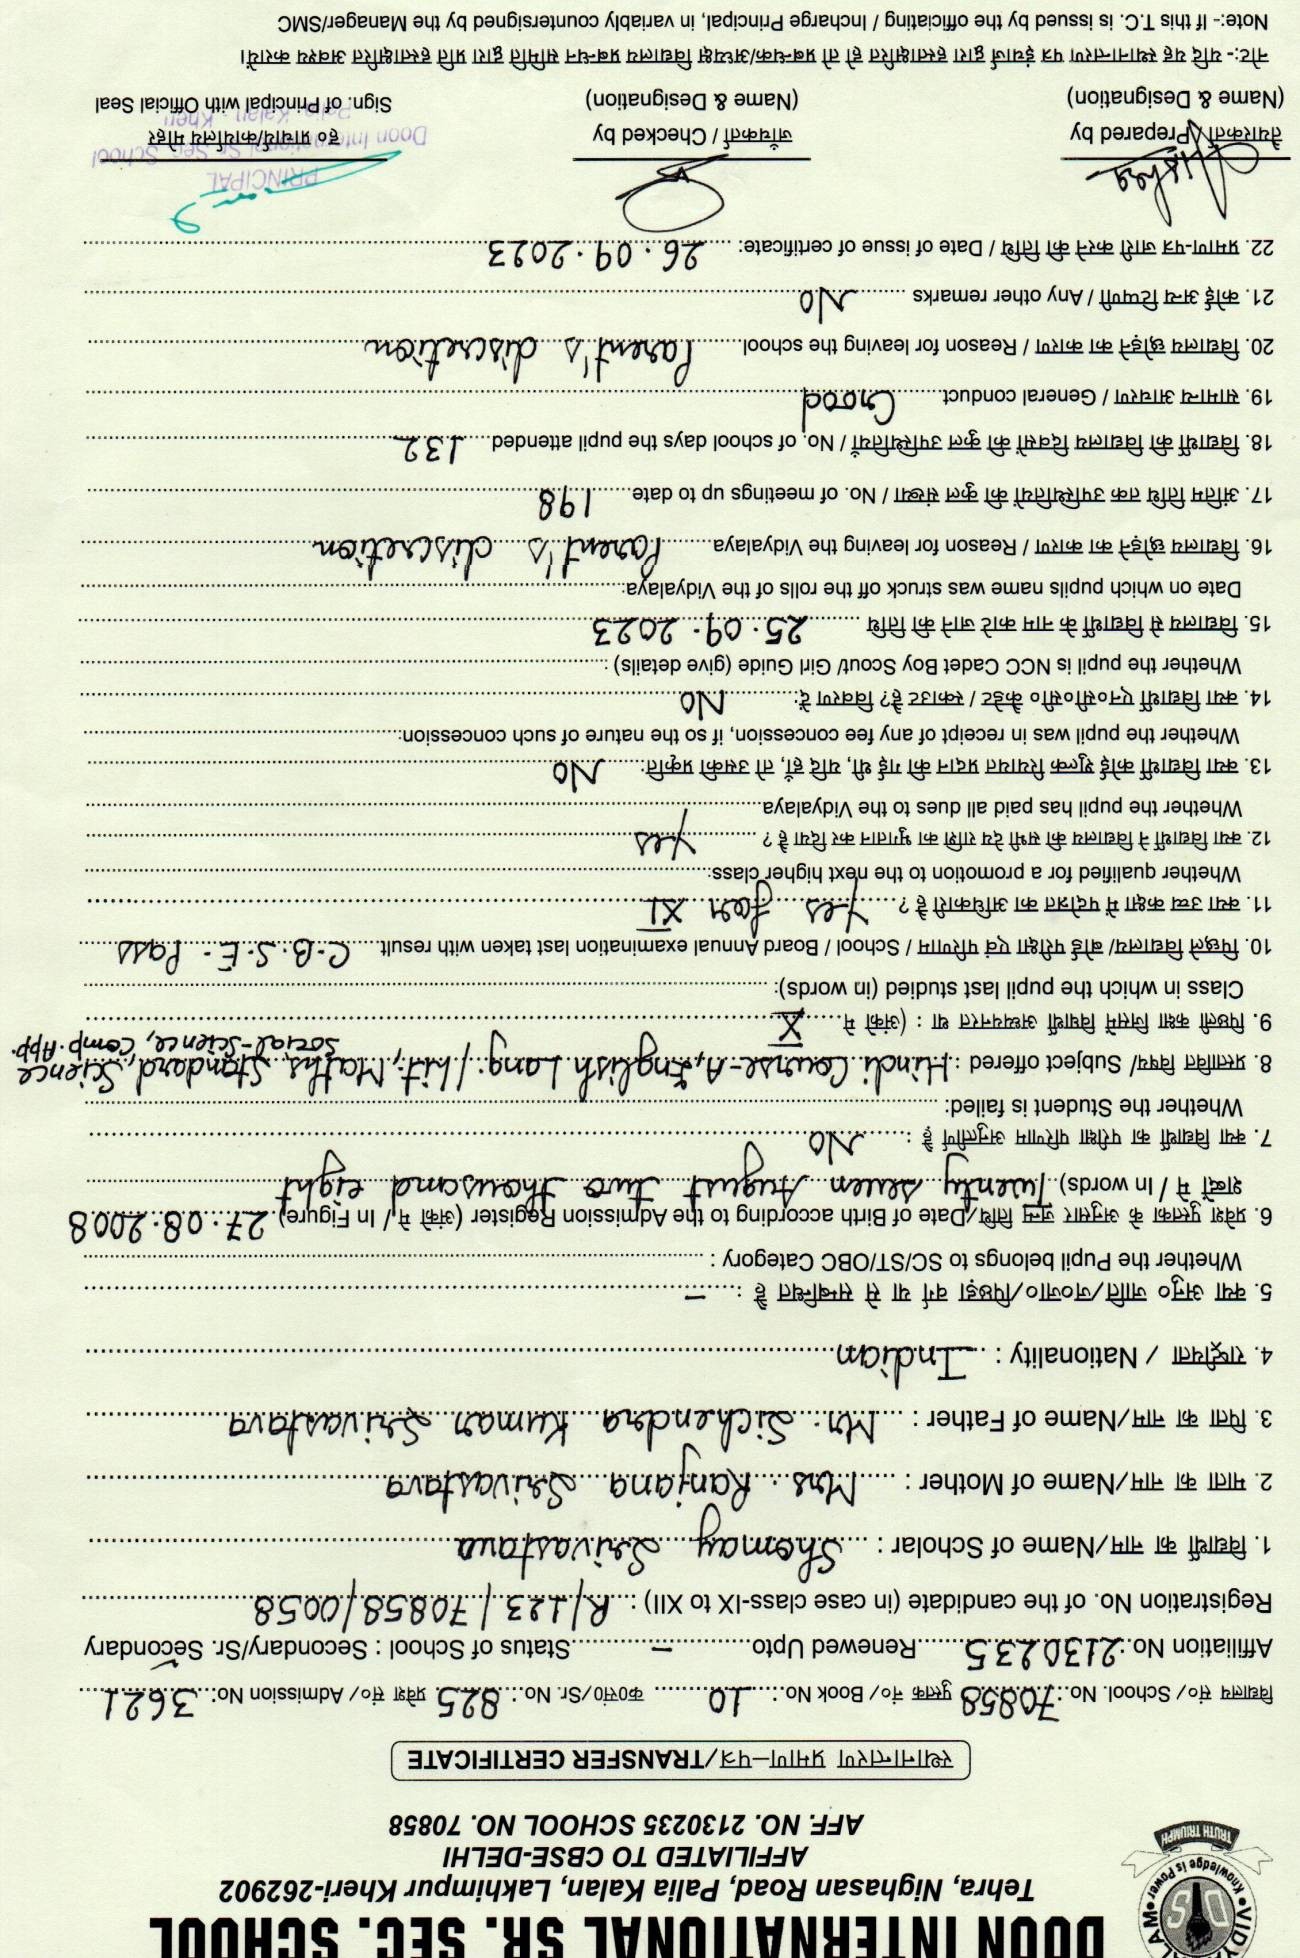 DOON INTERNATIONAL SR. SEC. SCHOOL
Tehra, Nighasan Road, Palia Kalan, Lakhimpur Kheri-262902
AFFILIATED TO CBSE-DELHI
AFF. NO. 2130235 SCHOOL NO. 70858
Knowledge is Power
TRUTH TRIUMPH
स्थानान्तरण प्रमाण–पत्र/TRANSFER CERTIFICATE
विद्यालय सं०/ School. No.: 70858 पुस्तक नं०/ Book No.: 10 क०सं०/Sr. No.: 825 प्रवेश सं०/ Admission No: 3621
Affiliation No: 2130235 Renewed Upto – Status of School : Secondary/Sr. Secondary
Registration No. of the candidate (in case class-IX to XII) : R/123/70858/0058
1. विद्यार्थी का नाम/Name of Scholar : Shomay Srivastava
2. माता का नाम/Name of Mother : Mrs. Ranjana Srivastava
3. पिता का नाम/Name of Father : Mr. Sichendra Kumar Srivastava
4. राष्ट्रीयता / Nationality : Indian
5. क्या अनु० जाति/ज०जा०/पिछड़ा वर्ग या से सम्बन्धित है : –
Whether the Pupil belongs to SC/ST/OBC Category :
6. प्रवेश पुस्तिका के अनुसार जन्म तिथि/Date of Birth according to the Admission Register (अंको में / In Figure) 27.08.2008
शब्दों में / In words) Twenty seven August two thousand eight
7. क्या विद्यार्थी का परीक्षा परिणाम अनुत्तीर्ण है : No
Whether the Student is failed:
8. प्रस्तावित विषय/ Subject offered : Hindi Course-A, English Lang. / Lit., Maths Standard, Science
Social-Science, Comp. App.
9. पिछली कक्षा जिसमें विद्यार्थी अध्ययनरत था : (अंको में X
Class in which the pupil last studied (in words):
10. पिछले विद्यालय/ बोर्ड परीक्षा एवं परिणाम / School / Board Annual examination last taken with result C.B.S.E. Pass
11. क्या उच्च कक्षा में पदोन्नत का अधिकारी है ? Yes for XI
Whether qualified for a promotion to the next higher class:
12. क्या विद्यार्थी ने विद्यालय की सभी देय राशि का भुगतान कर दिया है ? Yes
Whether the pupil has paid all dues to the Vidyalaya
13. क्या विद्यार्थी कोई शुल्क रियायत प्रदान की गई थी, यदि हाँ, तो उसकी प्रकृति: No
Whether the pupil was in receipt of any fee concession, if so the nature of such concession:
14. क्या विद्यार्थी एन०सी०सी० कैडेट / स्काउट है? विवरण दें: No
Whether the pupil is NCC Cadet Boy Scout/ Girl Guide (give details) :
15. विद्यालय से विद्यार्थी के नाम काटे जाने की तिथि 25.09.2023
Date on which pupils name was struck off the rolls of the Vidyalaya:
16. विद्यालय छोड़ने का कारण / Reason for leaving the Vidyalaya Parent's discretion
17. अंतिम तिथि तक उपस्थितियों की कुल संख्या / No. of meetings up to date 198
18. विद्यार्थी की विद्यालय दिवसों की कुल उपस्थितियाँ / No. of school days the pupil attended 132
19. सामान्य आचरण / General conduct Good
20. विद्यालय छोड़ने का कारण / Reason for leaving the school Parent's discretion
21. कोई अन्य टिप्पणी / Any other remarks No
22. प्रमाण-पत्र जारी करने की तिथि / Date of issue of certificate: 26.09.2023
PRINCIPAL
Doon International Sr. Sec. School
Palia Kalan, Kheri
तैयारकर्ता/ Prepared by जाँचकर्ता / Checked by ह० प्राचार्य/कार्यालय मोहर
(Name & Designation) (Name & Designation) Sign. of Principal with Official Seal
नोट:- यदि यह स्थानान्तरण पत्र इंचार्ज द्वारा हस्ताक्षरित हो तो प्रबन्धक/अध्यक्ष विद्यालय प्रबन्धन समिति द्वारा प्रति हस्ताक्षरित अवश्य करायें।
Note:- If this T.C. is issued by the officiating / Incharge Principal, in variably countersigned by the Manager/SMC